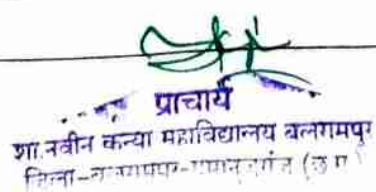 प्राचार्य
शा. नवीन कन्या महाविद्यालय बलरामपुर
जिला-बलरामपुर-रामानुजगंज (छ.ग.)